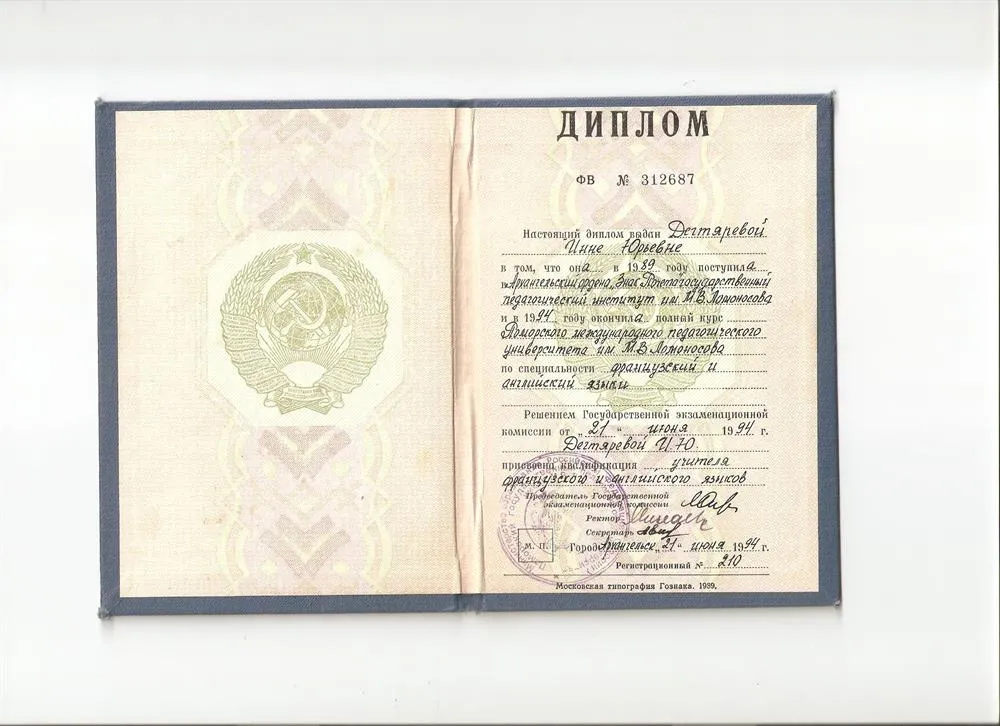 ДИПЛОМ
ФВ № 312687
Настоящий диплом выдан Дегтяревой
Инне Юрьевне
в том, что она в 1989 году поступила
в Архангельский ордена „Знак Почета" государственный
педагогический институт им. М.В. Ломоносова
и в 1994 году окончила полный курс
Поморского международного педагогического
университета им. М.В. Ломоносова
по специальности французский и
английский языки
Решением Государственной экзаменационной
комиссии от „21" июня 1994 г.
Дегтяревой И.Ю.
присвоена квалификация учителя
французского и английского языков
Председатель Государственной
экзаменационной комиссии
Ректор
Секретарь
М. П. Город Архангельск „21" июня 1994 г.
Регистрационный № 210
Московская типография Гознака. 1989.